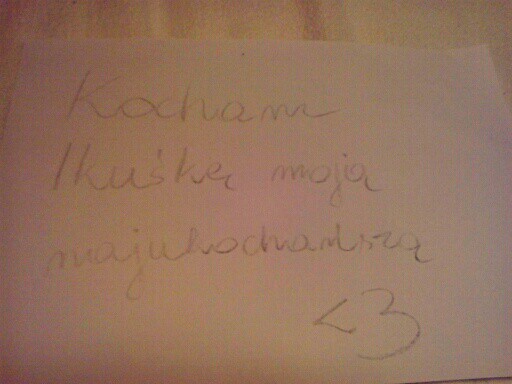 Kocham
Ikuśkę moją
najukochańszą
<3